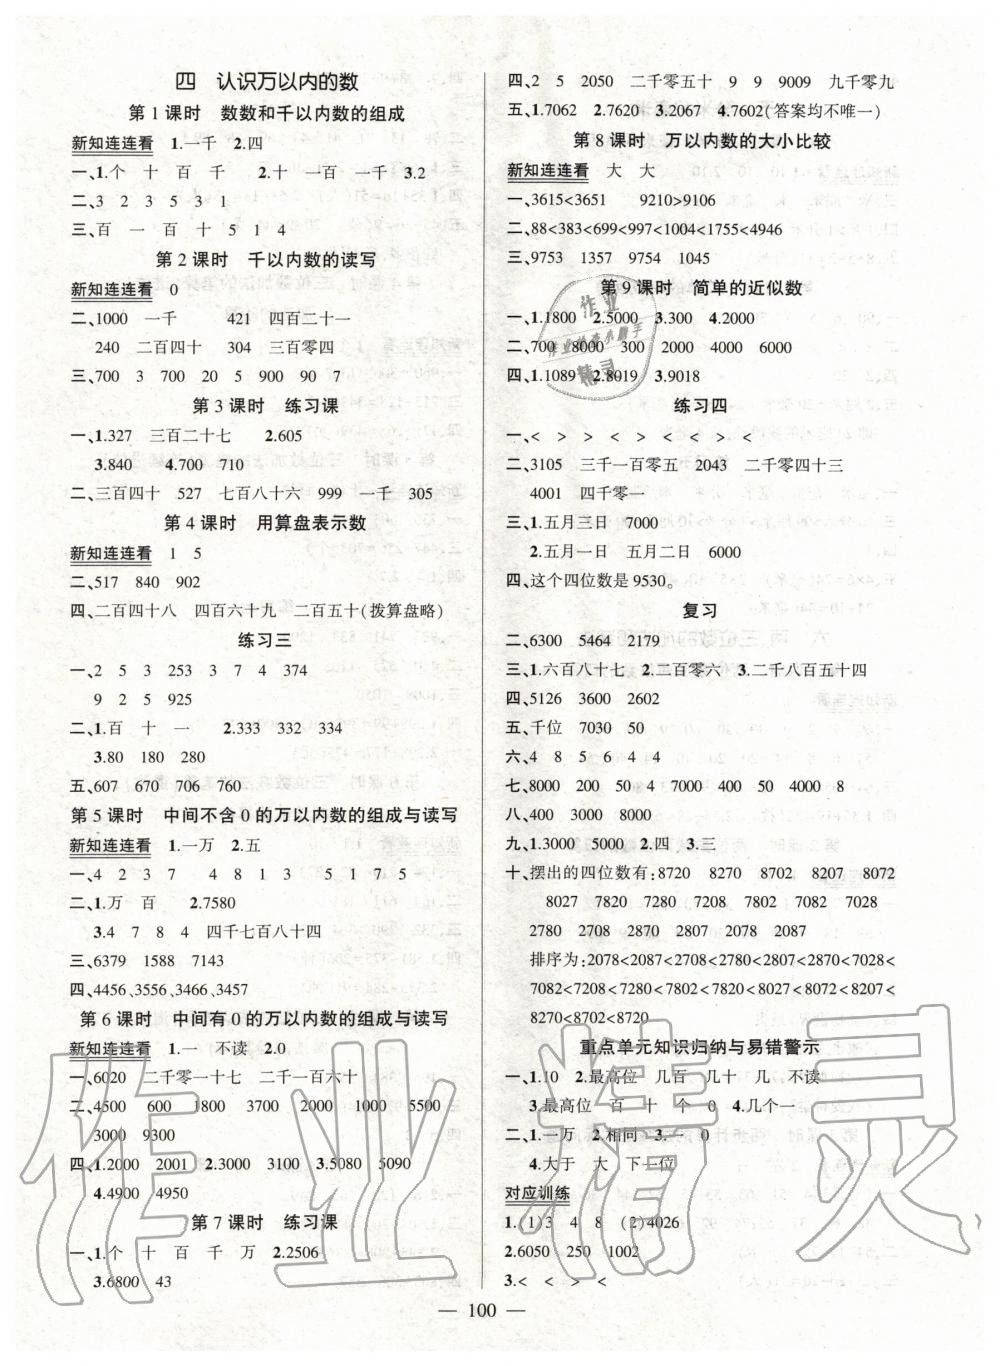 四 认识万以内的数
第 1 课时 数数和千以内数的组成
新知连连看 1.一千 2.四
一、1.个 十 百 千 2.十 一百 一千 3.2
二、3 2 3 5 3 1
三、百 一 百 十 5 1 4
第 2 课时 千以内数的读写
新知连连看 0
二、1000 一千 421 四百二十一
240 二百四十 304 三百零四
三、700 3 700 20 5 900 90 7
第 3 课时 练习课
一、1.327 三百二十七 2.605
3.840 4.700 710
二、三百四十 527 七百八十六 999 一千 305
第 4 课时 用算盘表示数
新知连连看 1 5
二、517 840 902
四、二百四十八 四百六十九 二百五十(拨算盘略)
练习三
一、2 5 3 253 3 7 4 374
9 2 5 925
二、1.百 十 一 2.333 332 334
3.80 180 280
五、607 670 706 760
第 5 课时 中间不含 0 的万以内数的组成与读写
新知连连看 1.一万 2.五
一、4 2 3 7 4 8 1 3 5 1 7 5
二、1.万 百 2.7580
3.4 7 8 4 四千七百八十四
三、6379 1588 7143
四、4456、3556、3466、3457
第 6 课时 中间有 0 的万以内数的组成与读写
新知连连看 1.一 不读 2.0
一、6020 二千零一十七 二千一百六十
二、4500 600 1800 3700 2000 1000 5500
3000 9300
四、1.2000 2001 2.3000 3100 3.5080 5090
4.4900 4950
第 7 课时 练习课
一、1.个 十 百 千 万 2.2506
3.6800 43
四、2 5 2050 二千零五十 9 9 9009 九千零九
五、1.7062 2.7620 3.2067 4.7602(答案均不唯一)
第 8 课时 万以内数的大小比较
新知连连看 大 大
一、3615<3651 9210>9106
二、88<383<699<997<1004<1755<4946
三、9753 1357 9754 1045
第 9 课时 简单的近似数
一、1.1800 2.5000 3.300 4.2000
二、700 8000 300 2000 4000 6000
四、1.1089 2.8019 3.9018
练习四
一、< > > > < > < < > <
二、3105 三千一百零五 2043 二千零四十三
4001 四千零一
三、1.五月三日 7000
2.五月一日 五月二日 6000
四、这个四位数是 9530。
复习
二、6300 5464 2179
三、1.六百八十七 2.二百零六 3.二千八百五十四
四、5126 3600 2602
五、千位 7030 50
六、4 8 5 6 4 4
七、8000 200 50 4 7000 400 50 4000 8
八、400 3000 8000
九、1.3000 5000 2.四 3.三
十、摆出的四位数有:8720 8270 8702 8207 8072
8027 7820 7280 7802 7208 7082 7028
2780 2708 2870 2807 2078 2087
排序为:2078<2087<2708<2780<2807<2870<7028<
7082<7208<7280<7802<7820<8027<8072<8207<
8270<8702<8720
重点单元知识归纳与易错警示
一、1.10 2.最高位 几百 几十 几 不读
3.最高位 百 十 个 0 4.几个一
二、1.一万 2.相同 3.一 0
4.大于 大 下一位
对应训练
1.(1)3 4 8 (2)4026
2.6050 250 1002
3.< < > <
— 100 —
作业
作业检查小助手
精灵
作业精灵